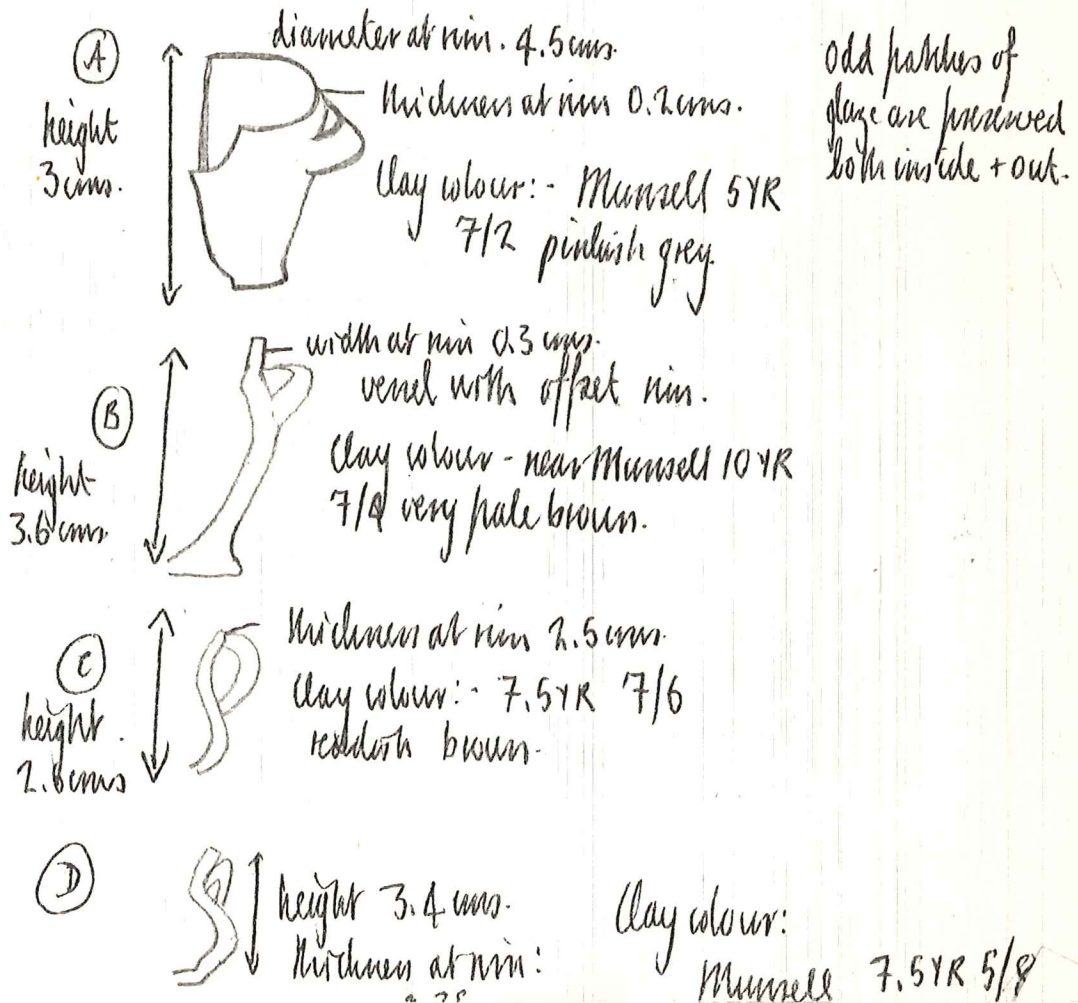 A
height
3 cms.
diameter at rim. 4.5 cms.
thickness at rim 0.2 cms.
Clay colour:- Munsell 5YR
7/2 pinkish grey.
odd patches of
glaze are preserved
both inside + out.
B
height
3.6 cms.
width at rim 0.3 cms.
vessel with offset rim.
Clay colour - near Munsell 10YR
7/4 very pale brown.
C
height.
cms
thickness at rim 2.5 cms.
Clay colour:- 7.5YR 7/6
reddish brown.
D
height 3.4 cms.
thickness at rim:
Clay colour:
Munsell 7.5YR